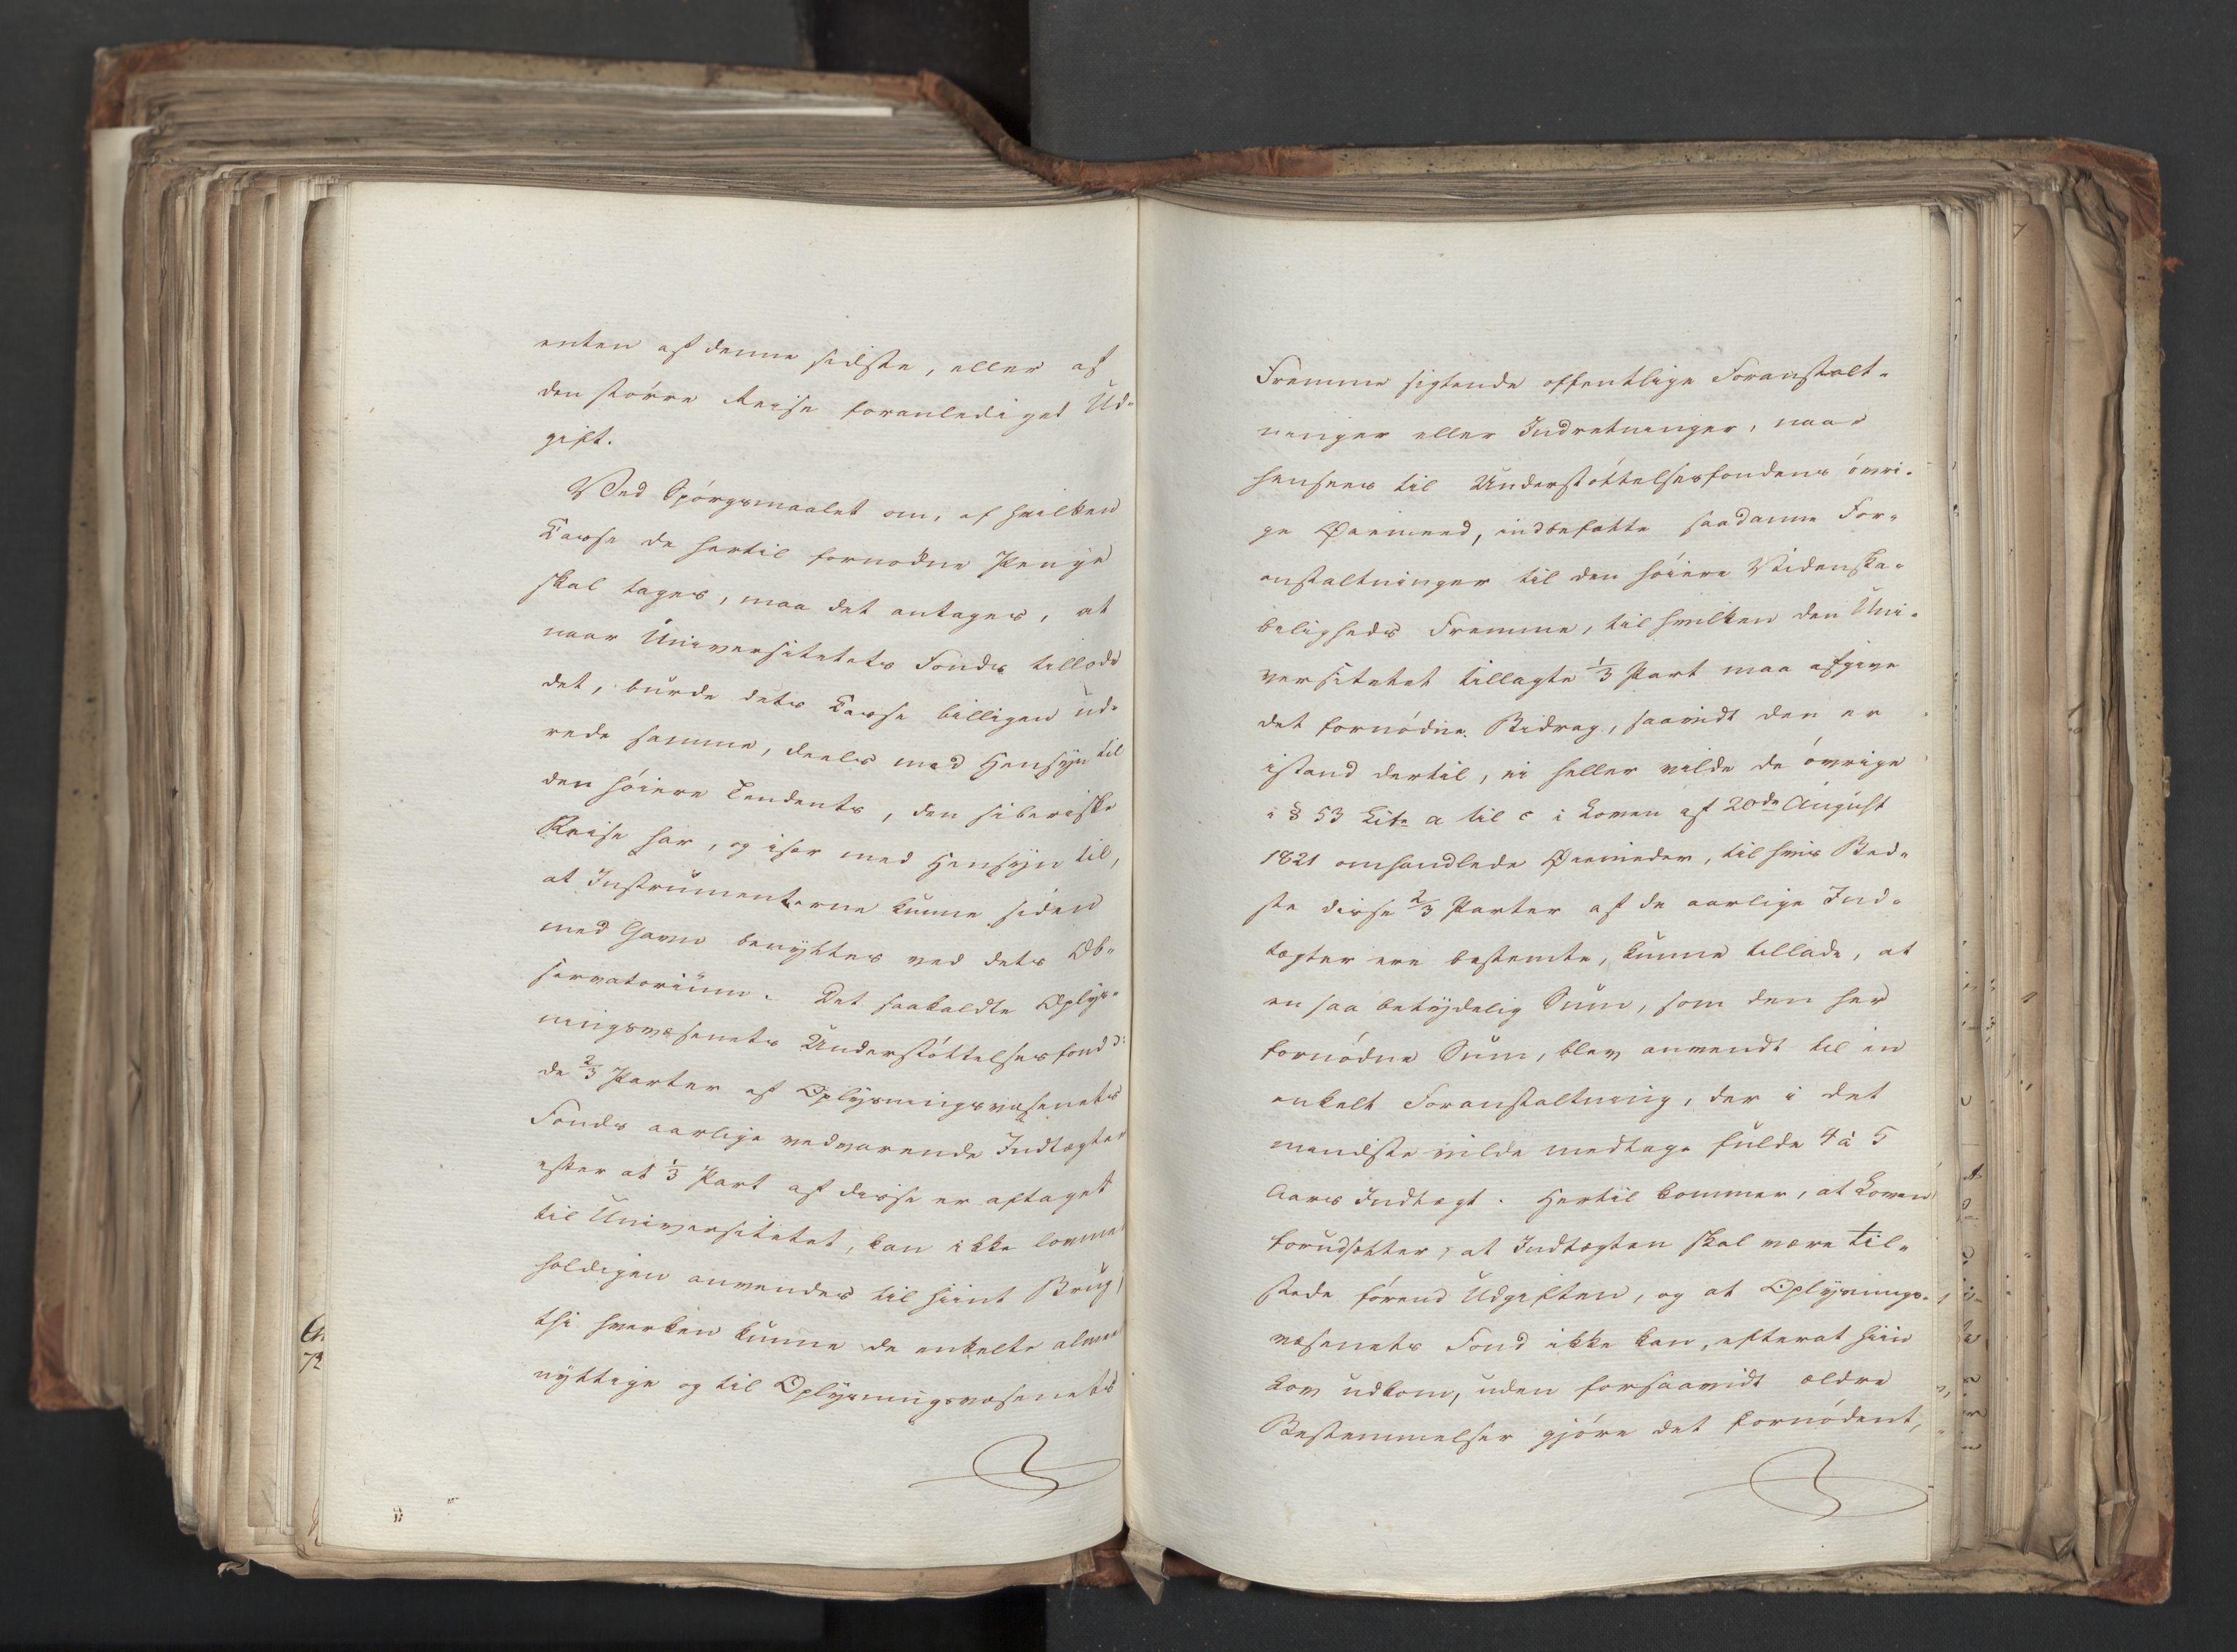 enten af denne sidste, eller af
den større Reise foranlediget Ud-
gift.
Ved Spørgsmaalet om, af hvilken
Casse de hertil fornødne Penge
skal tages, maa det antages, at
naar Universitetets Fonds tillode
det, burde dets Casse billigen ud-
rede samme, deels med Hensyn til
den høiere Tendents, den siberiske
Reise har, og især med Hensyn til,
at Instrumenterne kunne siden
med Gavn benyttes ved dets Ob-
servatorium. Det saakaldte Oplys-
ningsvæsenets Understøttelsesfond ɔ:
de 2/3 Parter af Oplysningsvæsenets
Fonds aarlige vedvarende Indtægter
efter at 1/3 Part af disse er aftaget
til Universitetet, kan ikke lovme
holdigen anvendes til hiint Brug,
thi hverken kunne de enkelte alme
nyttige og til Oplysningsvæsenets
Fremme sigtende offentlige Foranstalt-
ninger eller Indretninger, naar
hensees til Understøttelsesfondens øvri-
ge Øiemeed, indbefatte saadanne For-
anstaltninger til den høiere Videnska-
beligheds Fremme, til hvilken den Uni-
versitetet tillagte 1/3 Part maa afgive
det fornødne Bidrag, saavidt den er
istand dertil, ei heller vilde de øvrige
i § 53 Litr a til c i Loven af 20de August
1821 omhandlede Øiemeder, til hvis Bed-
ste disse 2/3 Parter af de aarlige Ind-
tægter ere bestemte, kunne tillade, at
en saa betydelig Sum, som den her
fornødne Sum, blev anvendt til en
enkelt Foranstaltning, der i det
mindste vilde medtage fulde 4 à 5
Aars Indtægt. Hertil kommer, at Loven
forudsætter, at Indtægten skal være til-
stede førend Udgiften, og at Oplysnings-
væsenets Fond ikke kan, efterat hiin
Lov udkom, uden forsaavidt ældre
Bestemmelser gjøre det fornødent,